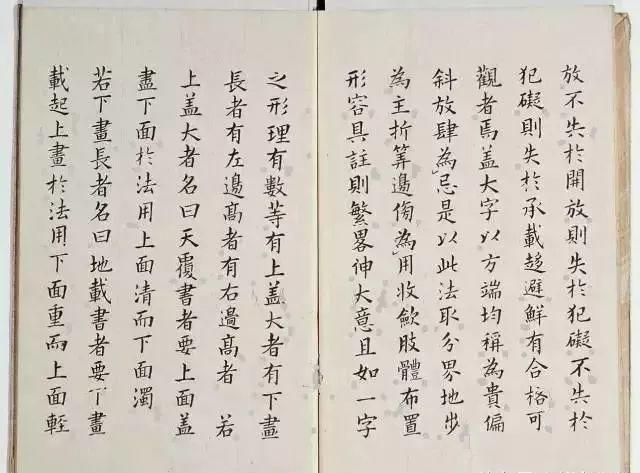 放不失於開放則失於犯礙不失於
犯礙則失於承載趍避鮮有合格可
觀者焉盖大字以方端均稱為貴偏
斜放肆為忌是以此法取分界地步
為主折筭邊傍為用收歛肢體布置
形容具註則繁畧伸大意且如一字
之形理有數等有上盖大者有下畫
長者有左邊髙者有右邊髙者 若
上盖大者名曰天覆書者要上面盖
盡下面於法用上面清而下面濁
若下畫長者名曰地載書者要下畫
載起上畫於法用下面重而上面輕